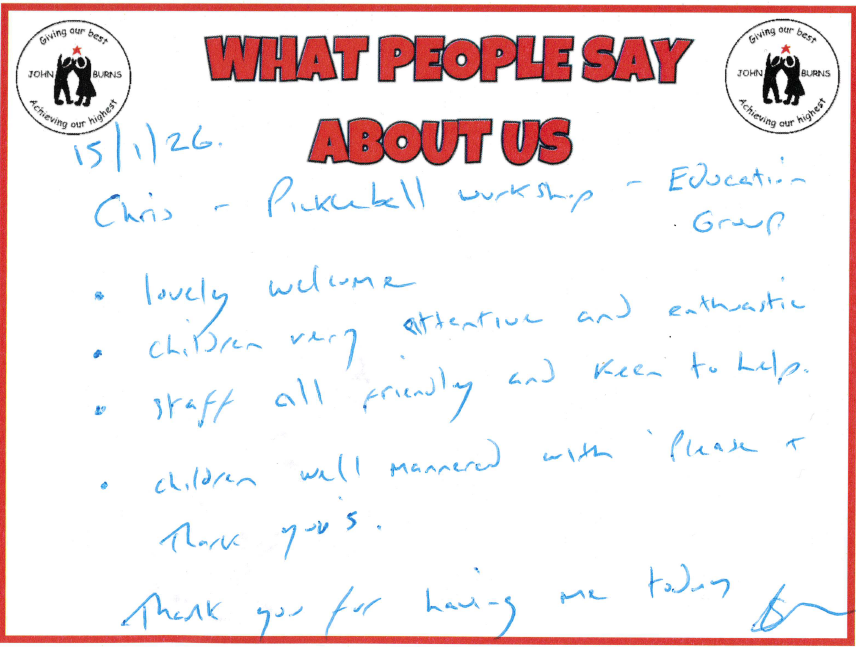 Giving our best
JOHN BURNS
Achieving our highest
WHAT PEOPLE SAY
ABOUT US
Giving our best
JOHN BURNS
Achieving our highest
15/1/26.
Chris - Pickleball workshop - Education
Group
• lovely welcome
• children very attentive and enthuastic
• staff all friendly and keen to help.
• children well mannered with 'Please +
Thank you's.
Thank you for having me today